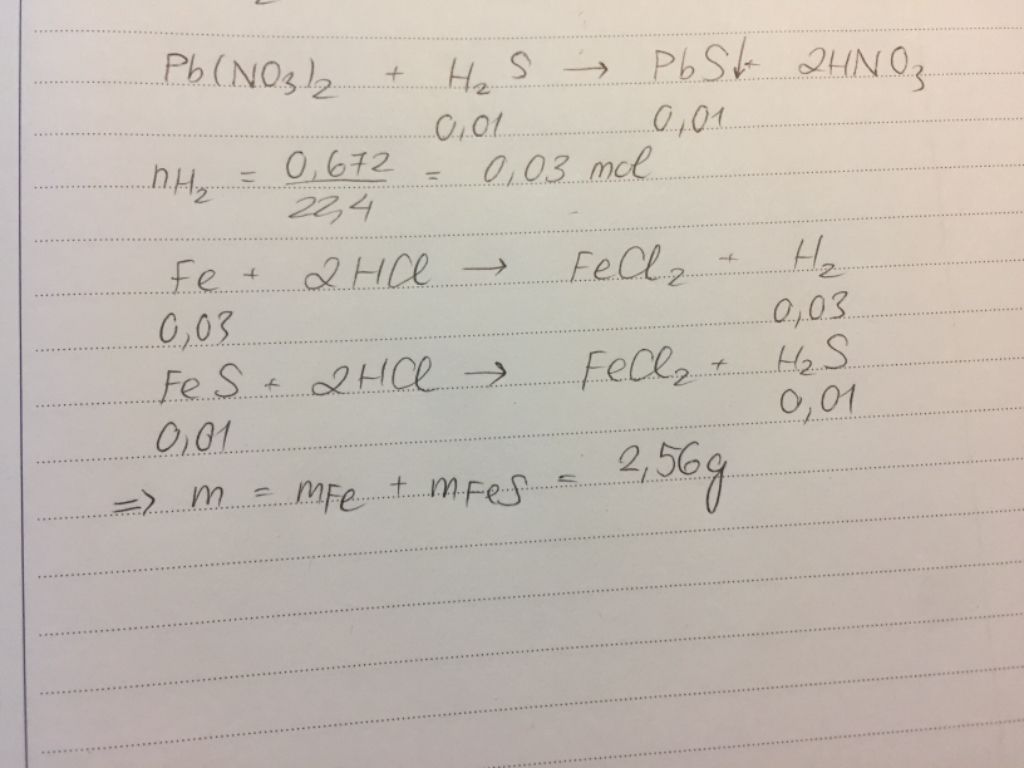 Pb(NO₃)₂ + H₂S → PbS↓ + 2HNO₃
0,01 0,01
nH₂ = 0,672/22,4 = 0,03 mol
Fe + 2HCl → FeCl₂ + H₂
0,03 0,03
FeS + 2HCl → FeCl₂ + H₂S
0,01 0,01
=> m = mFe + mFeS = 2,56g